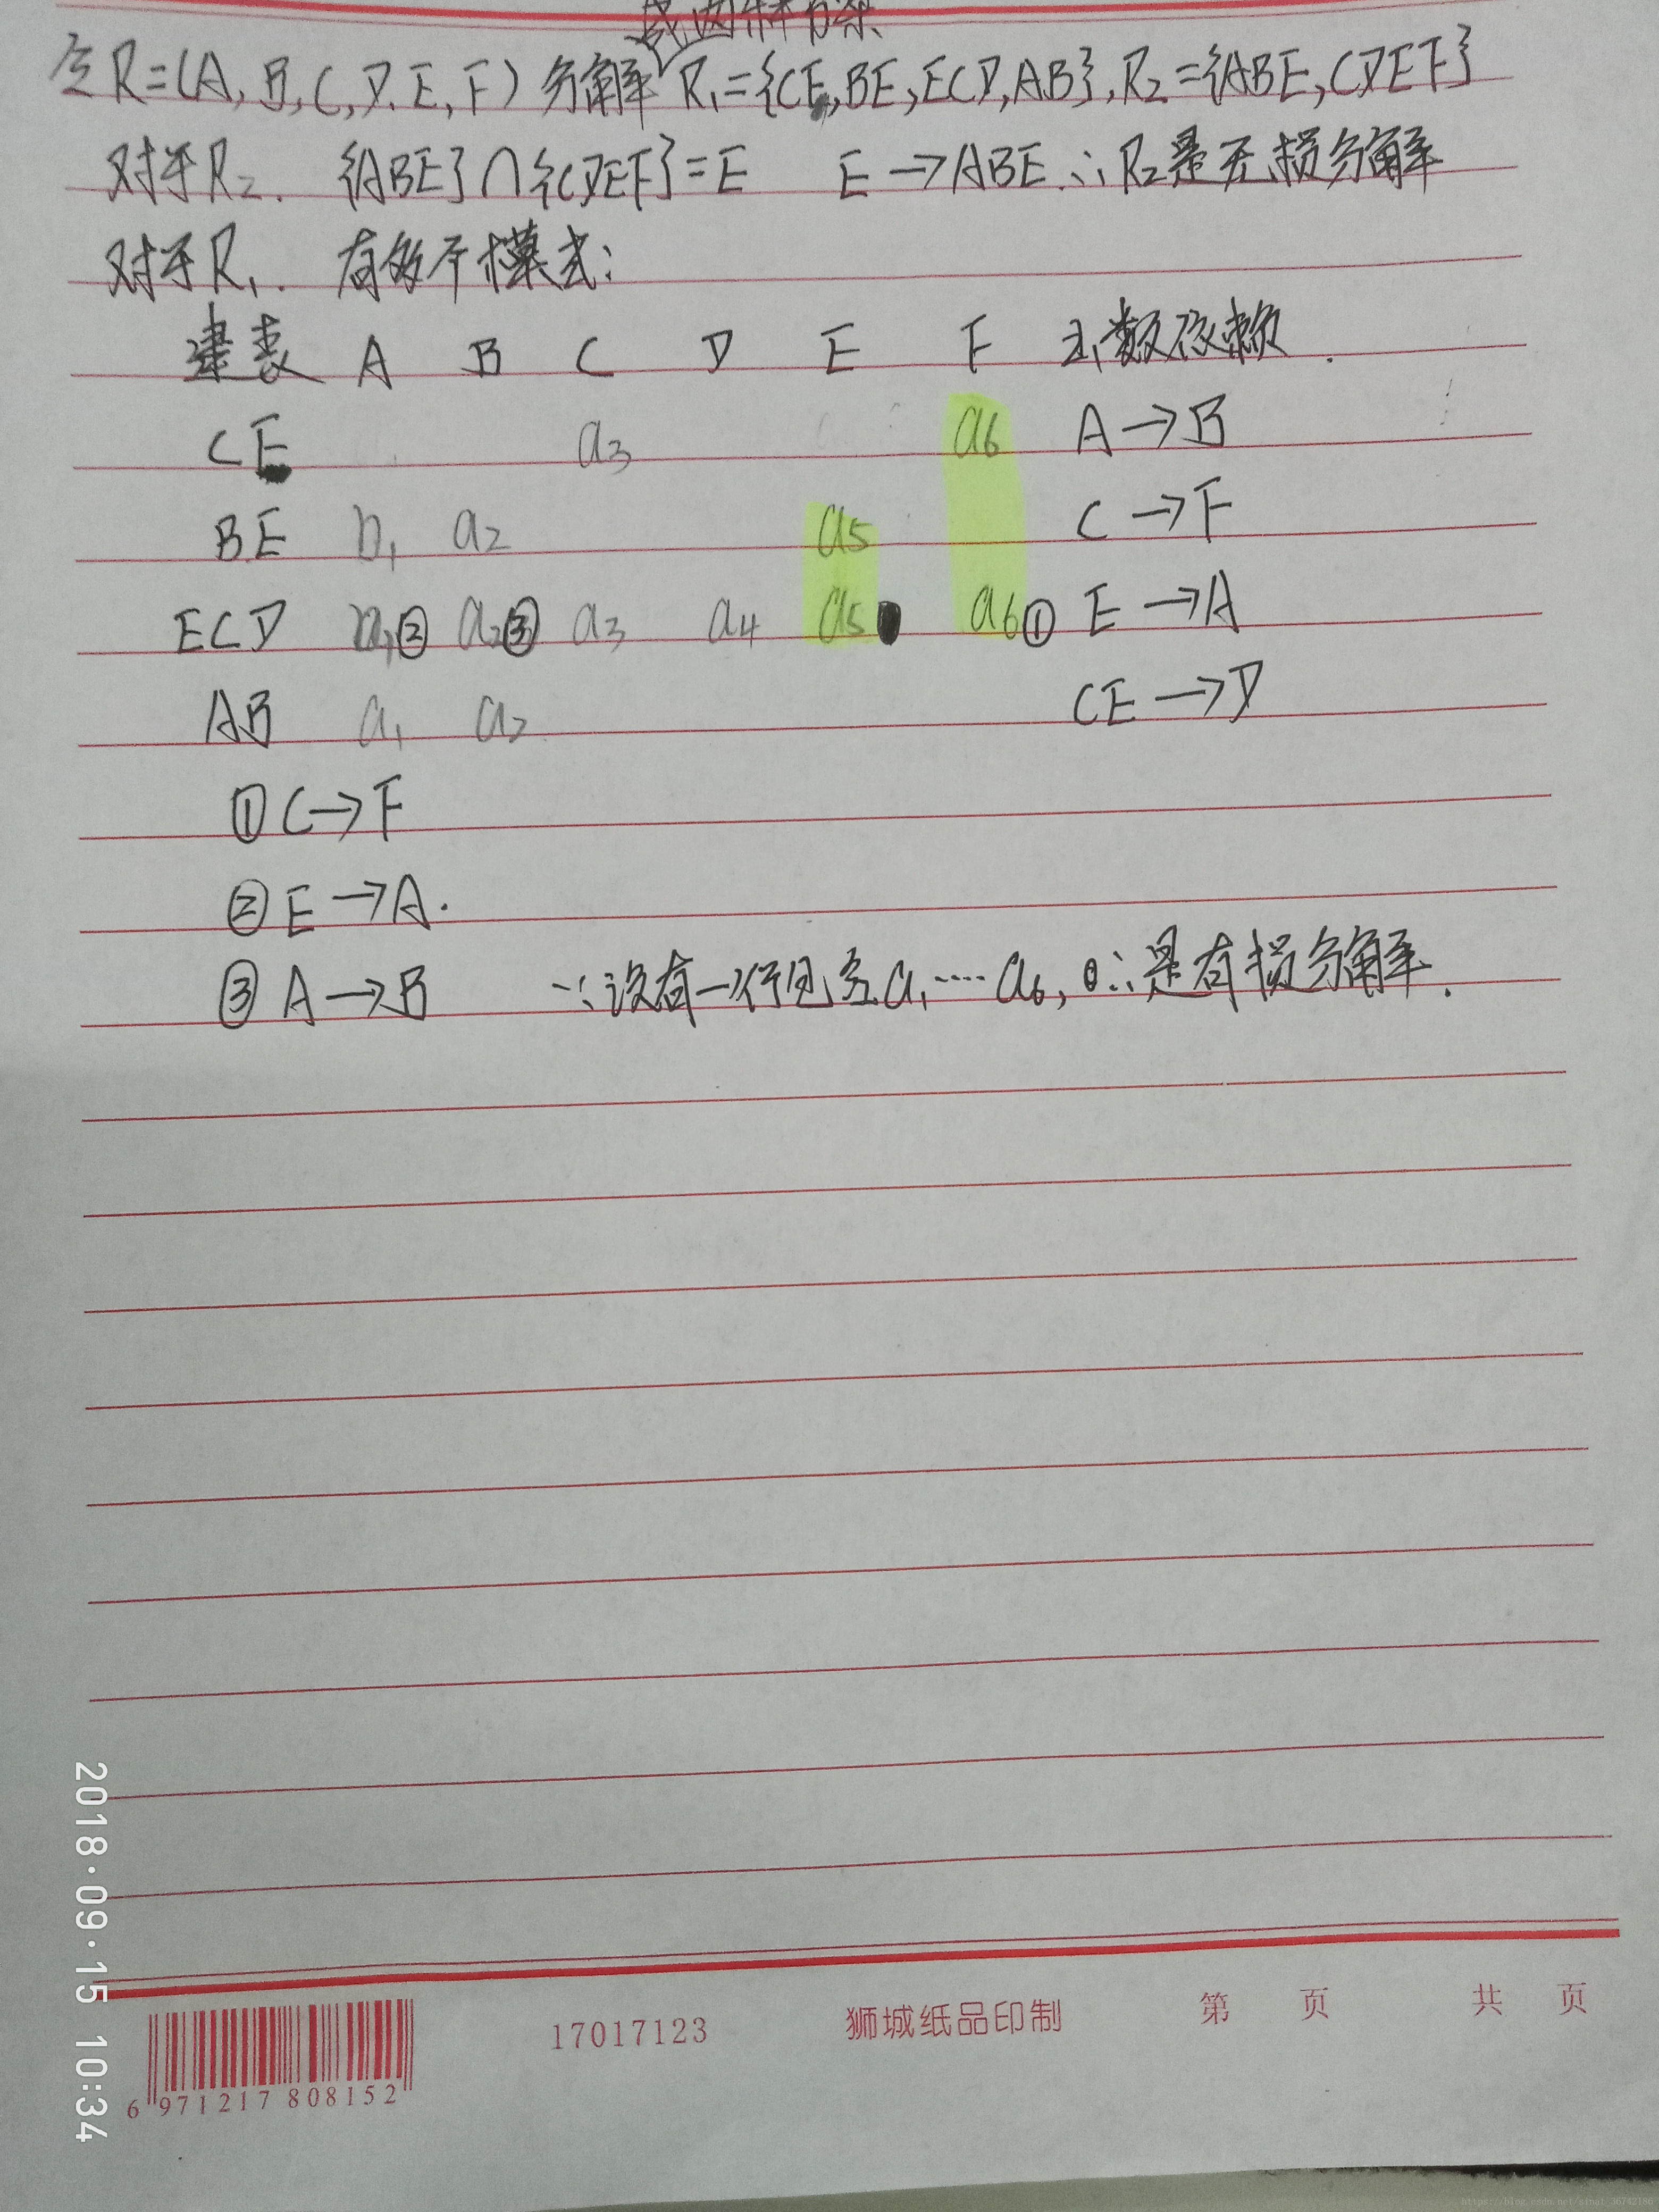 成两种方案
令R=(A,B,C,D,E,F)分解R₁={CE,BE,ECD,AB},R₂={ABE,CDEF}
对于R₂. {ABE}∩{CDEF}=E E→ABE.∴R₂是无损分解
对于R₁. 有多个模式:
建表 A B C D E F 函数依赖.
CE a₃ a₆ A→B
BE b₁ a₂ a₅ C→F
ECD a₁② a₂③ a₃ a₄ a₅ a₆① E→A
AB a₁ a₂ CE→D
①C→F
②E→A.
③A→B ∵没有一行包含a₁····a₆,∴是有损分解.
2018·09·15 10:34
17017123 狮城纸品印制 第 页 共 页
6 971217 808152